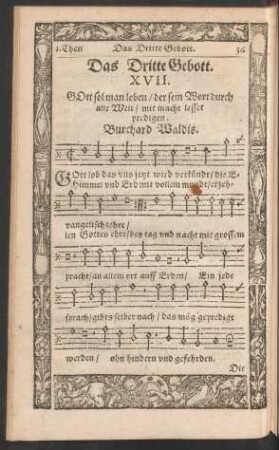 1.Theil Das Dritte Gebott. 36
Das Dritte Gebott.
XVII.
GOtt sol man loben / der sein Wort durch
alle Welt / mit macht lesset
predigen.
Burchard Waldis.
GOtt lob das vns jetzt wird verkündt / die E-
Himmel vnd Erd mit vollem mundt / erzeh-
vangelisch lehre /
len Gottes ehre / bey tag vnd nacht mit grossem
pracht / an allem ort auff Erden / Ein jede
sprach / gibts selber nach / das mög gepredigt
werden / ohn hindern vnd gefehrden.
Die